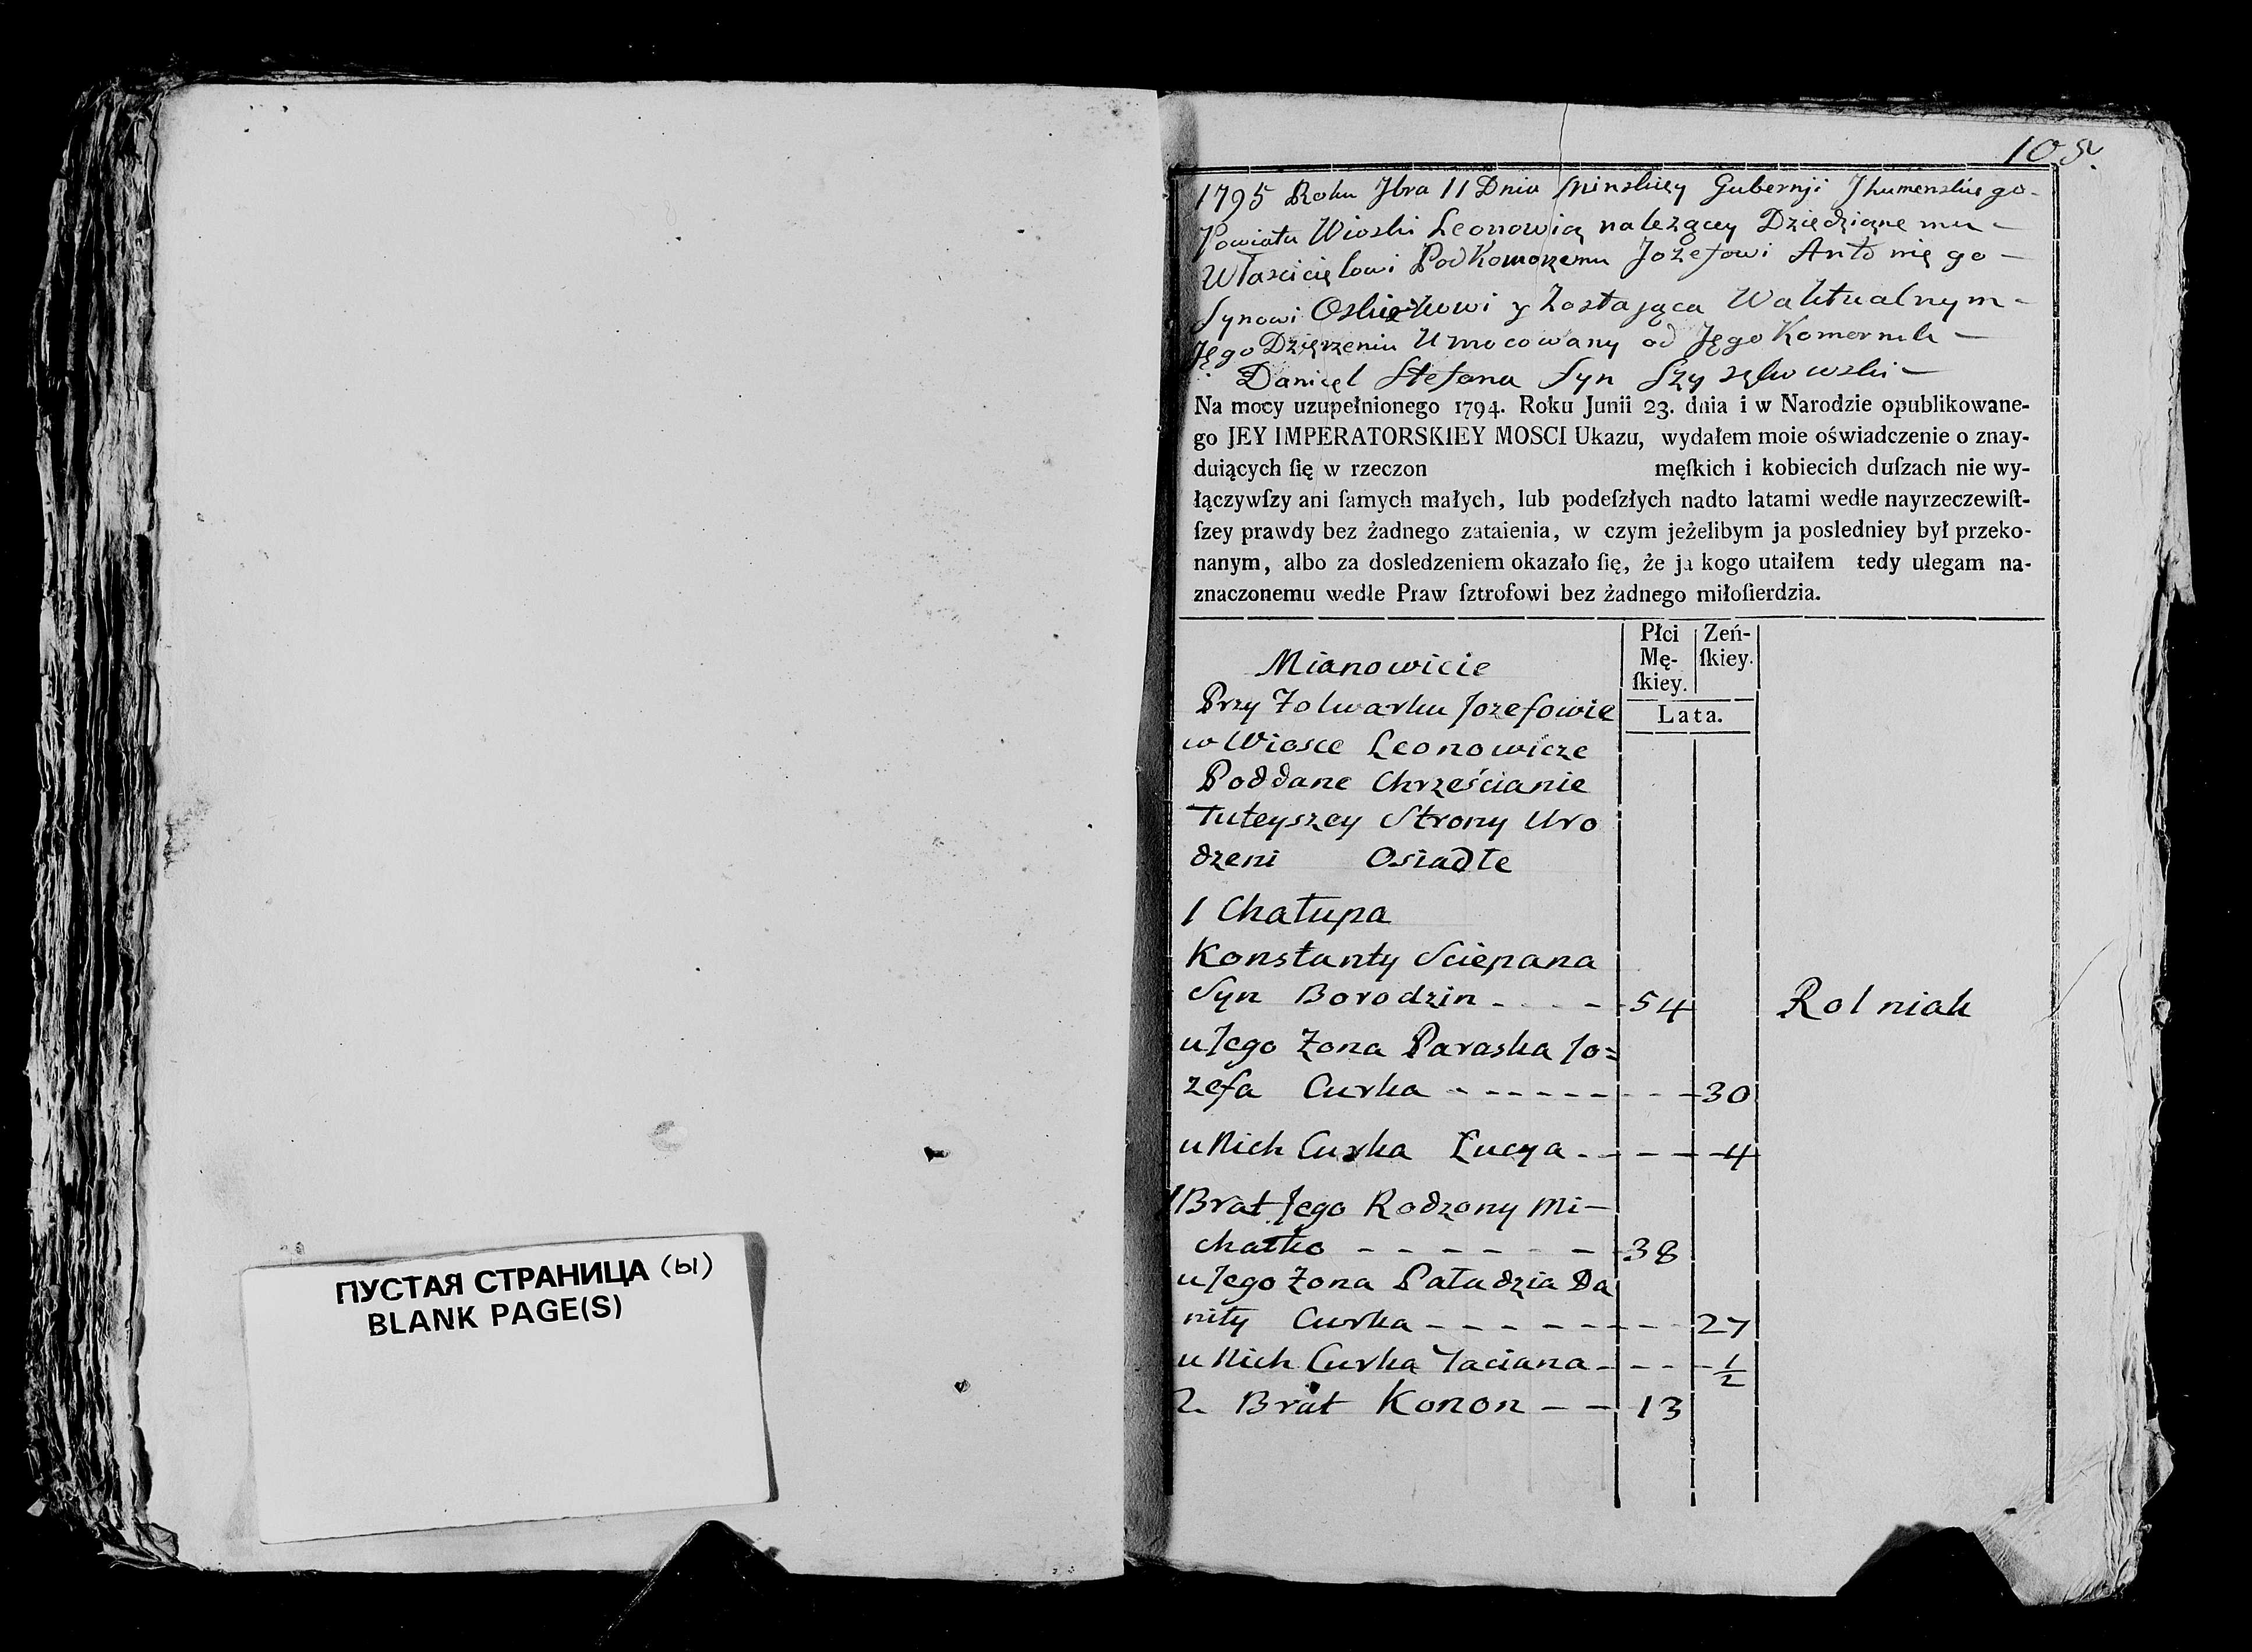 ПУСТАЯ СТРАНИЦА (ы)
BLANK PAGE(S)
105.
1795 Roku 7bra 11 Dnia Minskiey Gubernji Jhumenskiego
Powiatu Wioski Leonowicz należącey Dziedzicznemu
Własciciełowi PodKomorzemu Jozefowi Antoniego
Synowi y Zostająca W aktualnym
Jego Dzierzeniu Umocowany od Jego Komornik
Daniel Stefana Syn
Na mocy uzupełnionego 1794. Roku Junii 23. dnia i w Narodzie opublikowane-
go JEY IMPERATORSKIEY MOSCI Ukazu, wydałem moie oświadczenie o znay-
duiących ſię w rzeczon męſkich i kobiecich duſzach nie wy-
łączywſzy ani ſamych małych, lub podeſzłych nadto latami wedle nayrzeczewiſt-
ſzey prawdy bez żadnego zataienia, w czym jeżelibym ja posledniey był przeko-
nanym, albo za dosledzeniem okazało ſię, że ja kogo utaiłem tedy ulegam na-
znaczonemu wedle Praw ſztrofowi bez żadnego miłoſierdzia.
Płci Mę-ſkiey. Zeń-ſkiey.
Lata.
Mianowicie
Przy Folwarku Jozefowie
w Wiosce Leonowicze
Poddane Chrześcianie
Tuteyszey Strony Uro
dzeni Osiadłe
1 Chałupa
Konstanty Sciepana
Syn Borodzin - - - - 54 Rolniak
u Jego Żona Paraska Jo=
zefa Curka - - - - - - 30
u Nich Curka Łucya - - - 4
1 Brat Jego Rodzony Mi-
chałko - - - - - - 38
u Jego Żona Pałudzia Da
niły Curka - - - - - - - 27
u Nich Curka Taciana - - - 1/2
2 Brat Konon - - 13